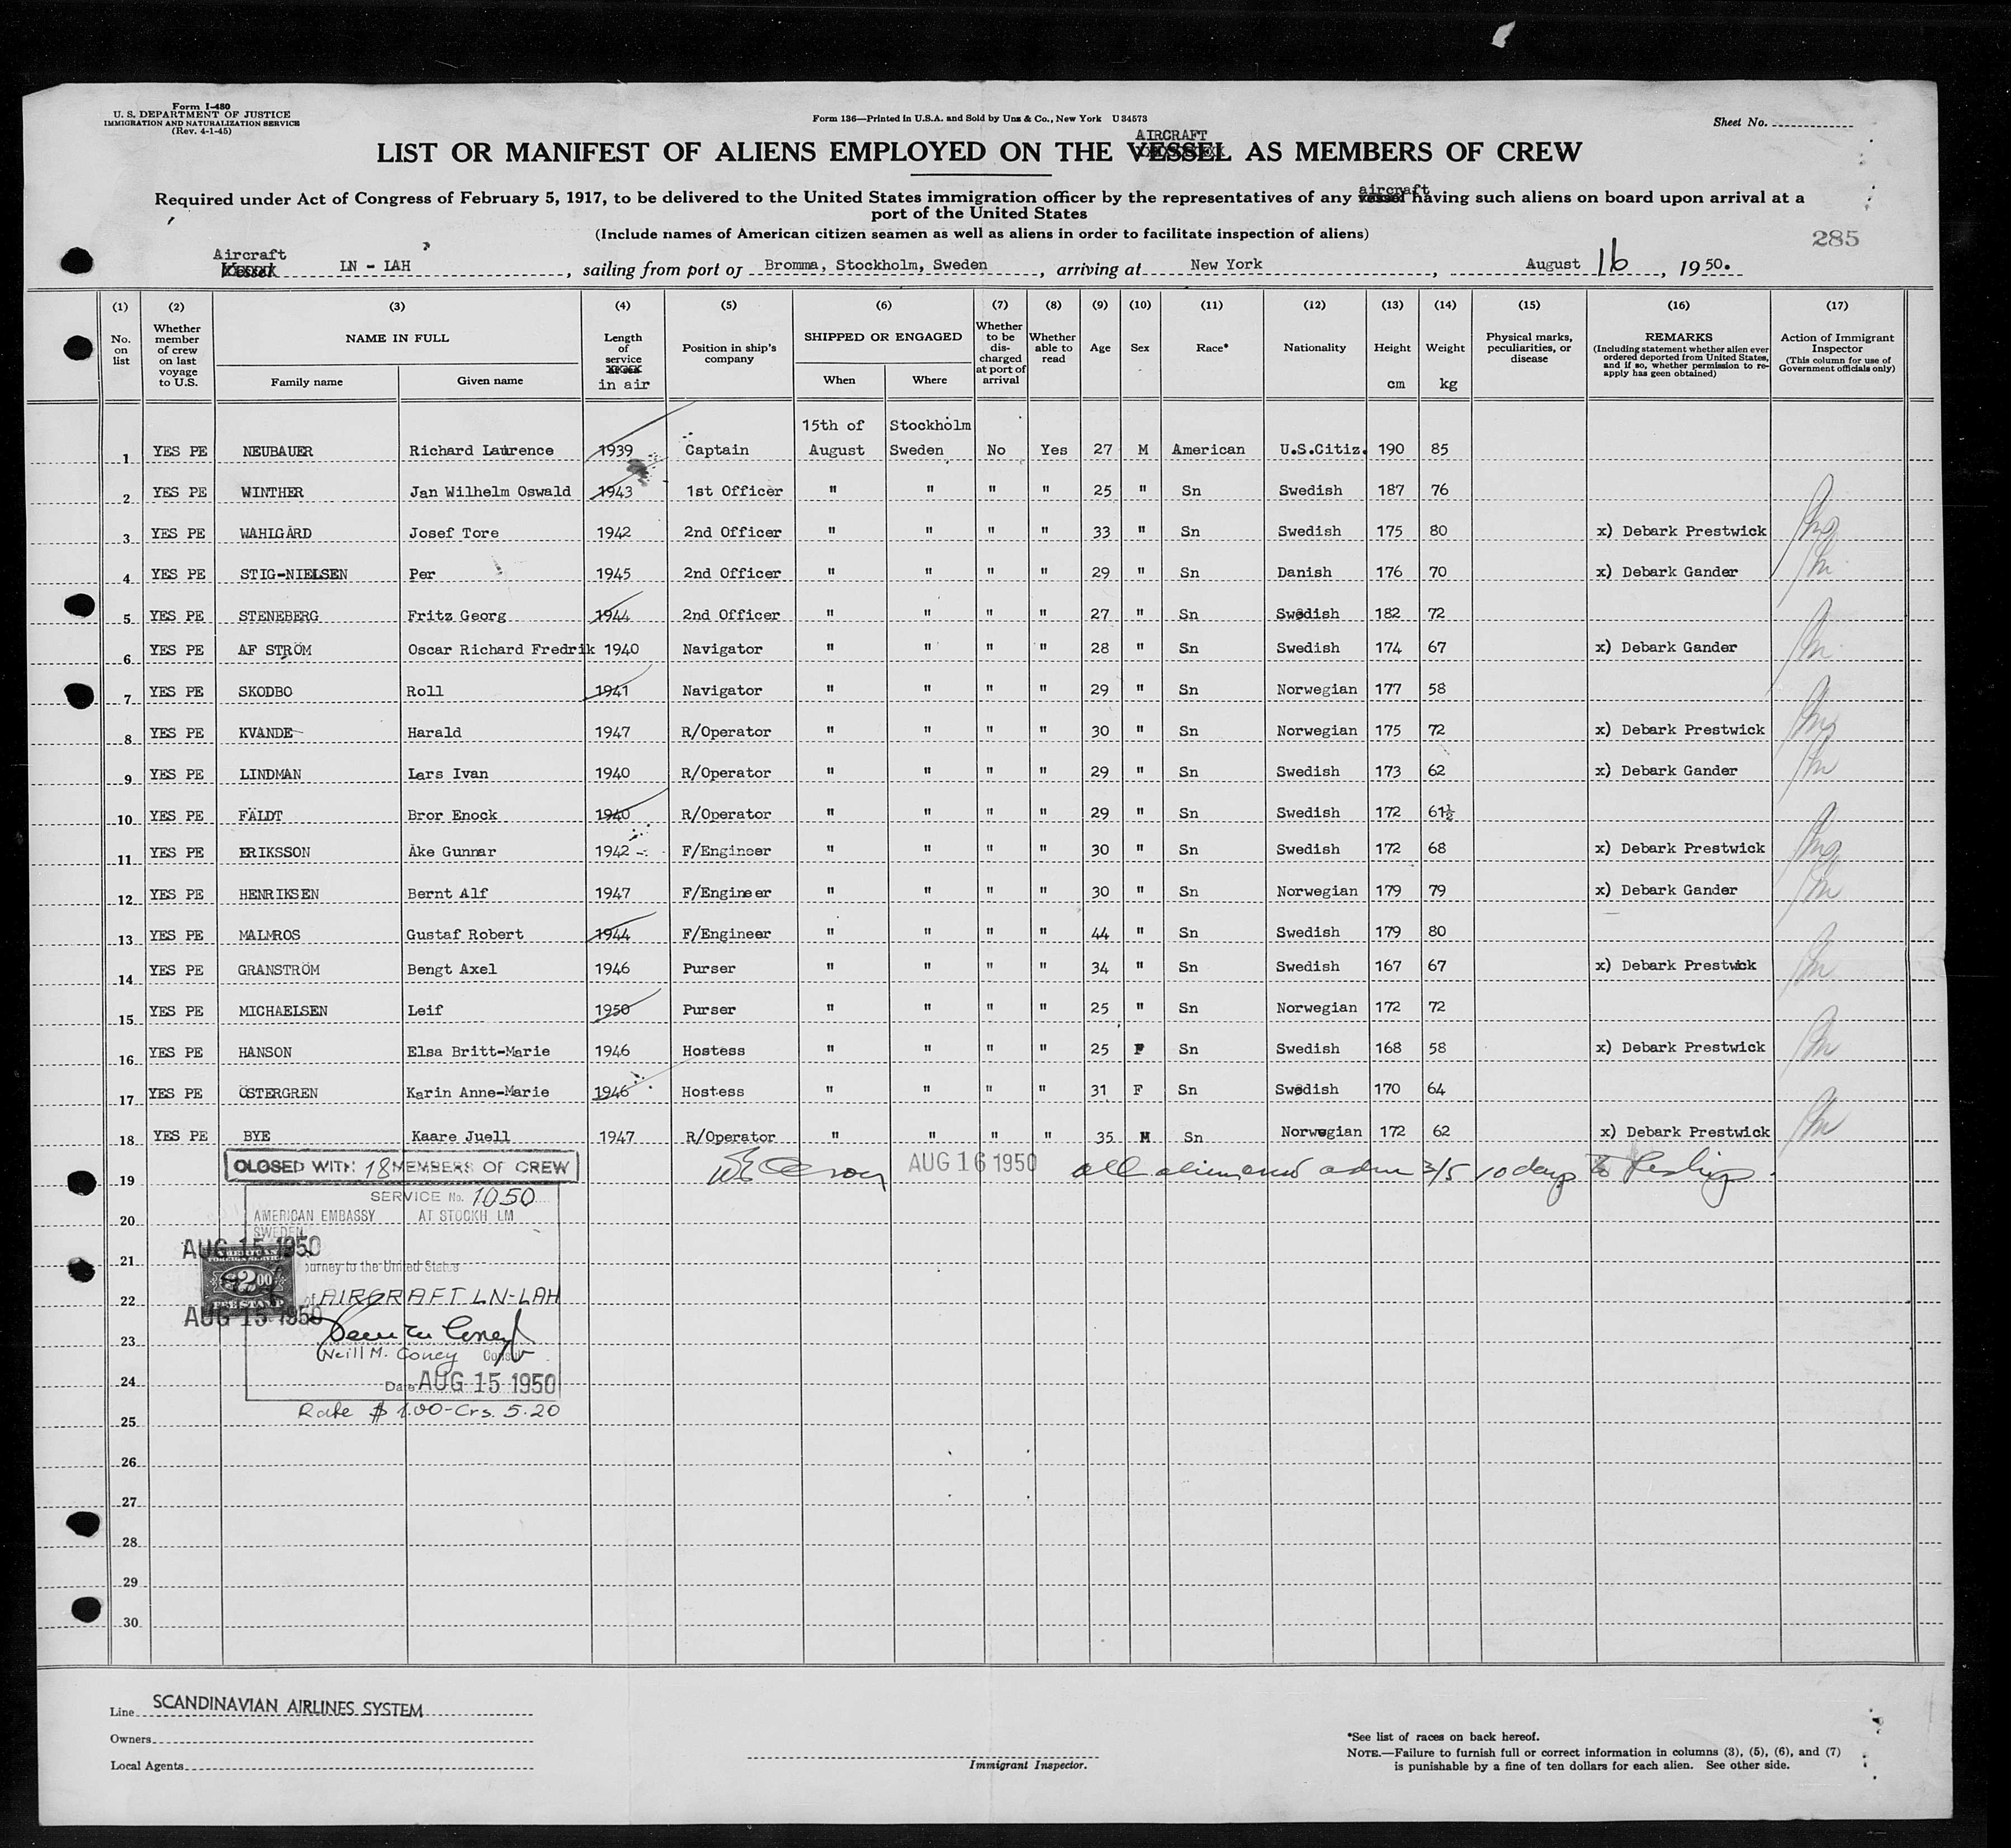 Form I-480
U. S. DEPARTMENT OF JUSTICE
IMMIGRATION AND NATURALIZATION SERVICE
(Rev. 4-1-45)
Form 136—Printed in U.S.A. and Sold by Unz & Co., New York U 34573
Sheet No.
AIRCRAFT
LIST OR MANIFEST OF ALIENS EMPLOYED ON THE VESSEL AS MEMBERS OF CREW
aircraft
Required under Act of Congress of February 5, 1917, to be delivered to the United States immigration officer by the representatives of any vessel having such aliens on board upon arrival at a
port of the United States
(Include names of American citizen seamen as well as aliens in order to facilitate inspection of aliens)
285
Aircraft
Vessel LN - LAH , sailing from port of Bromma, Stockholm, Sweden , arriving at New York , August 16 , 19 50.
(1) (2) (3) (4) (5) (6) (7) (8) (9) (10) (11) (12) (13) (14) (15) (16) (17)
No. on list
Whether member of crew on last voyage to U.S.
NAME IN FULL
Family name Given name
Length of service at sea in air
Position in ship's company
SHIPPED OR ENGAGED
When Where
Whether to be discharged at port of arrival
Whether able to read
Age
Sex
Race*
Nationality
Height cm
Weight kg
Physical marks, peculiarities, or disease
REMARKS
(Including statement whether alien ever ordered deported from United States, and if so, whether permission to re-apply has geen obtained)
Action of Immigrant Inspector
(This column for use of Government officials only)
15th of Stockholm
1 YES PE NEUBAUER Richard Laurence 1939 Captain August Sweden No Yes 27 M American U.S.Citiz. 190 85
2 YES PE WINTHER Jan Wilhelm Oswald 1943 1st Officer " " " " 25 " Sn Swedish 187 76
3 YES PE WAHLGÅRD Josef Tore 1942 2nd Officer " " " " 33 " Sn Swedish 175 80 x) Debark Prestwick
4 YES PE STIG-NIELSEN Per 1945 2nd Officer " " " " 29 " Sn Danish 176 70 x) Debark Gander
5 YES PE STENEBERG Fritz Georg 1944 2nd Officer " " " " 27 " Sn Swedish 182 72
6 YES PE AF STRÖM Oscar Richard Fredrik 1940 Navigator " " " " 28 " Sn Swedish 174 67 x) Debark Gander
7 YES PE SKODBO Roll 1941 Navigator " " " " 29 " Sn Norwegian 177 58
8 YES PE KVANDE Harald 1947 R/Operator " " " " 30 " Sn Norwegian 175 72 x) Debark Prestwick
9 YES PE LINDMAN Lars Ivan 1940 R/Operator " " " " 29 " Sn Swedish 173 62 x) Debark Gander
10 YES PE FÄLDT Bror Enock 1940 R/Operator " " " " 29 " Sn Swedish 172 61½
11 YES PE ERIKSSON Åke Gunnar 1942 F/Engineer " " " " 30 " Sn Swedish 172 68 x) Debark Prestwick
12 YES PE HENRIKSEN Bernt Alf 1947 F/Engineer " " " " 30 " Sn Norwegian 179 79 x) Debark Gander
13 YES PE MALMROS Gustaf Robert 1944 F/Engineer " " " " 44 " Sn Swedish 179 80
14 YES PE GRANSTRÖM Bengt Axel 1946 Purser " " " " 34 " Sn Swedish 167 67 x) Debark Prestwick
15 YES PE MICHAELSEN Leif 1950 Purser " " " " 25 " Sn Norwegian 172 72
16 YES PE HANSON Elsa Britt-Marie 1946 Hostess " " " " 25 F Sn Swedish 168 58 x) Debark Prestwick
17 YES PE ÖSTERGREN Karin Anne-Marie 1946 Hostess " " " " 31 F Sn Swedish 170 64
18 YES PE BYE Kaare Juell 1947 R/Operator " " " " 35 M Sn Norwegian 172 62 x) Debark Prestwick
CLOSED WITH 18 MEMBERS OF CREW
19 AUG 16 1950 all aliens adm 3/5 10 days
SERVICE No. 1050
20 AMERICAN EMBASSY AT STOCKH LM
SWEDEN
AUG 15 1950
21 ourney to the United States
AMERICAN
FOREIGN SERVICE
$2.00
FEE STAMP
22 of AIRCRAFT LN-LAH
AUG 15 1950
23
Neill M. Coney Consul
24 Date AUG 15 1950
Rate $ 1.00-Crs. 5.20
25
26
27
28
29
30
Line SCANDINAVIAN AIRLINES SYSTEM
Owners
Local Agents
Immigrant Inspector.
*See list of races on back hereof.
NOTE.—Failure to furnish full or correct information in columns (3), (5), (6), and (7)
is punishable by a fine of ten dollars for each alien. See other side.